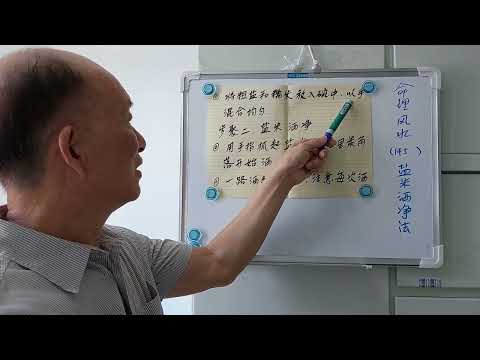 命理风水(145)盐米洒净法
⊙ 将粗盐和糯米放入碗中,以手
混合均匀
步骤二、盐米洒净
⊙ 用手指抓起盐 里某角
落开始洒
⊙ 一路洒 注意每次洒